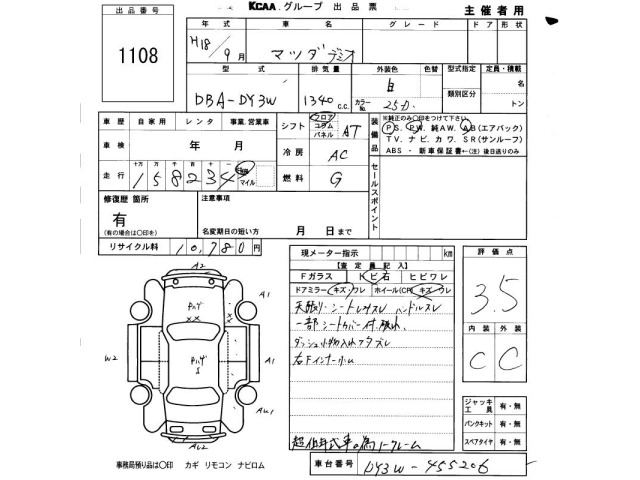 出品番号
1108
KCAA.グループ 出品票
主催者用
年式 車名 グレード ドア 形状
H18/9月 マツダデミオ
型式 排気量 外装色 色替 型式指定 定員・積載
DBA-DY3W 1340c.c. 白 カラーNo. 25D. 類別区分 名 トン
車歴 自家用 レンタ 事業.営業車
シフト フロア コラム パネル AT
装備品
※純正のみ〇印をつけて下さい。
P.S. P.W. 純AW. A.B(エアバック)
TV. ナビ. カワ. SR(サンルーフ)
ABS・新車保証書←(注)後日送りのみ
車検 年 月
冷房 AC
走行 十万 万 千 百 十 一
158234 マイル
燃料 G
セールスポイント
修復歴 箇所
有
(有の場合は〇印を)
注意事項
名変期日の短い方 月 日まで
リサイクル料 10,780円
現メーター指示 km
【査定員記入】
Fガラス トビ石 ヒビワレ
ドアミラー(キズ・ワレ) ホイール(CP)(キズ・ワレ)
天張り・シートレカスレ ハンドルスレ
一部シートカバー付.破れ.
ダッシュ小物入れフタズレ
右Fインナー小ム
超低年式車の為ノークレーム
車台番号 DY3W-455206
評価点
3.5
内装 外装
C C
ジャッキ 工具 有・無
パンクキット 有・無
スペアタイヤ 有・無
A2
A1
W2
A1
AU1
AU2
事務局預り品は〇印 カギ リモコン ナビロム